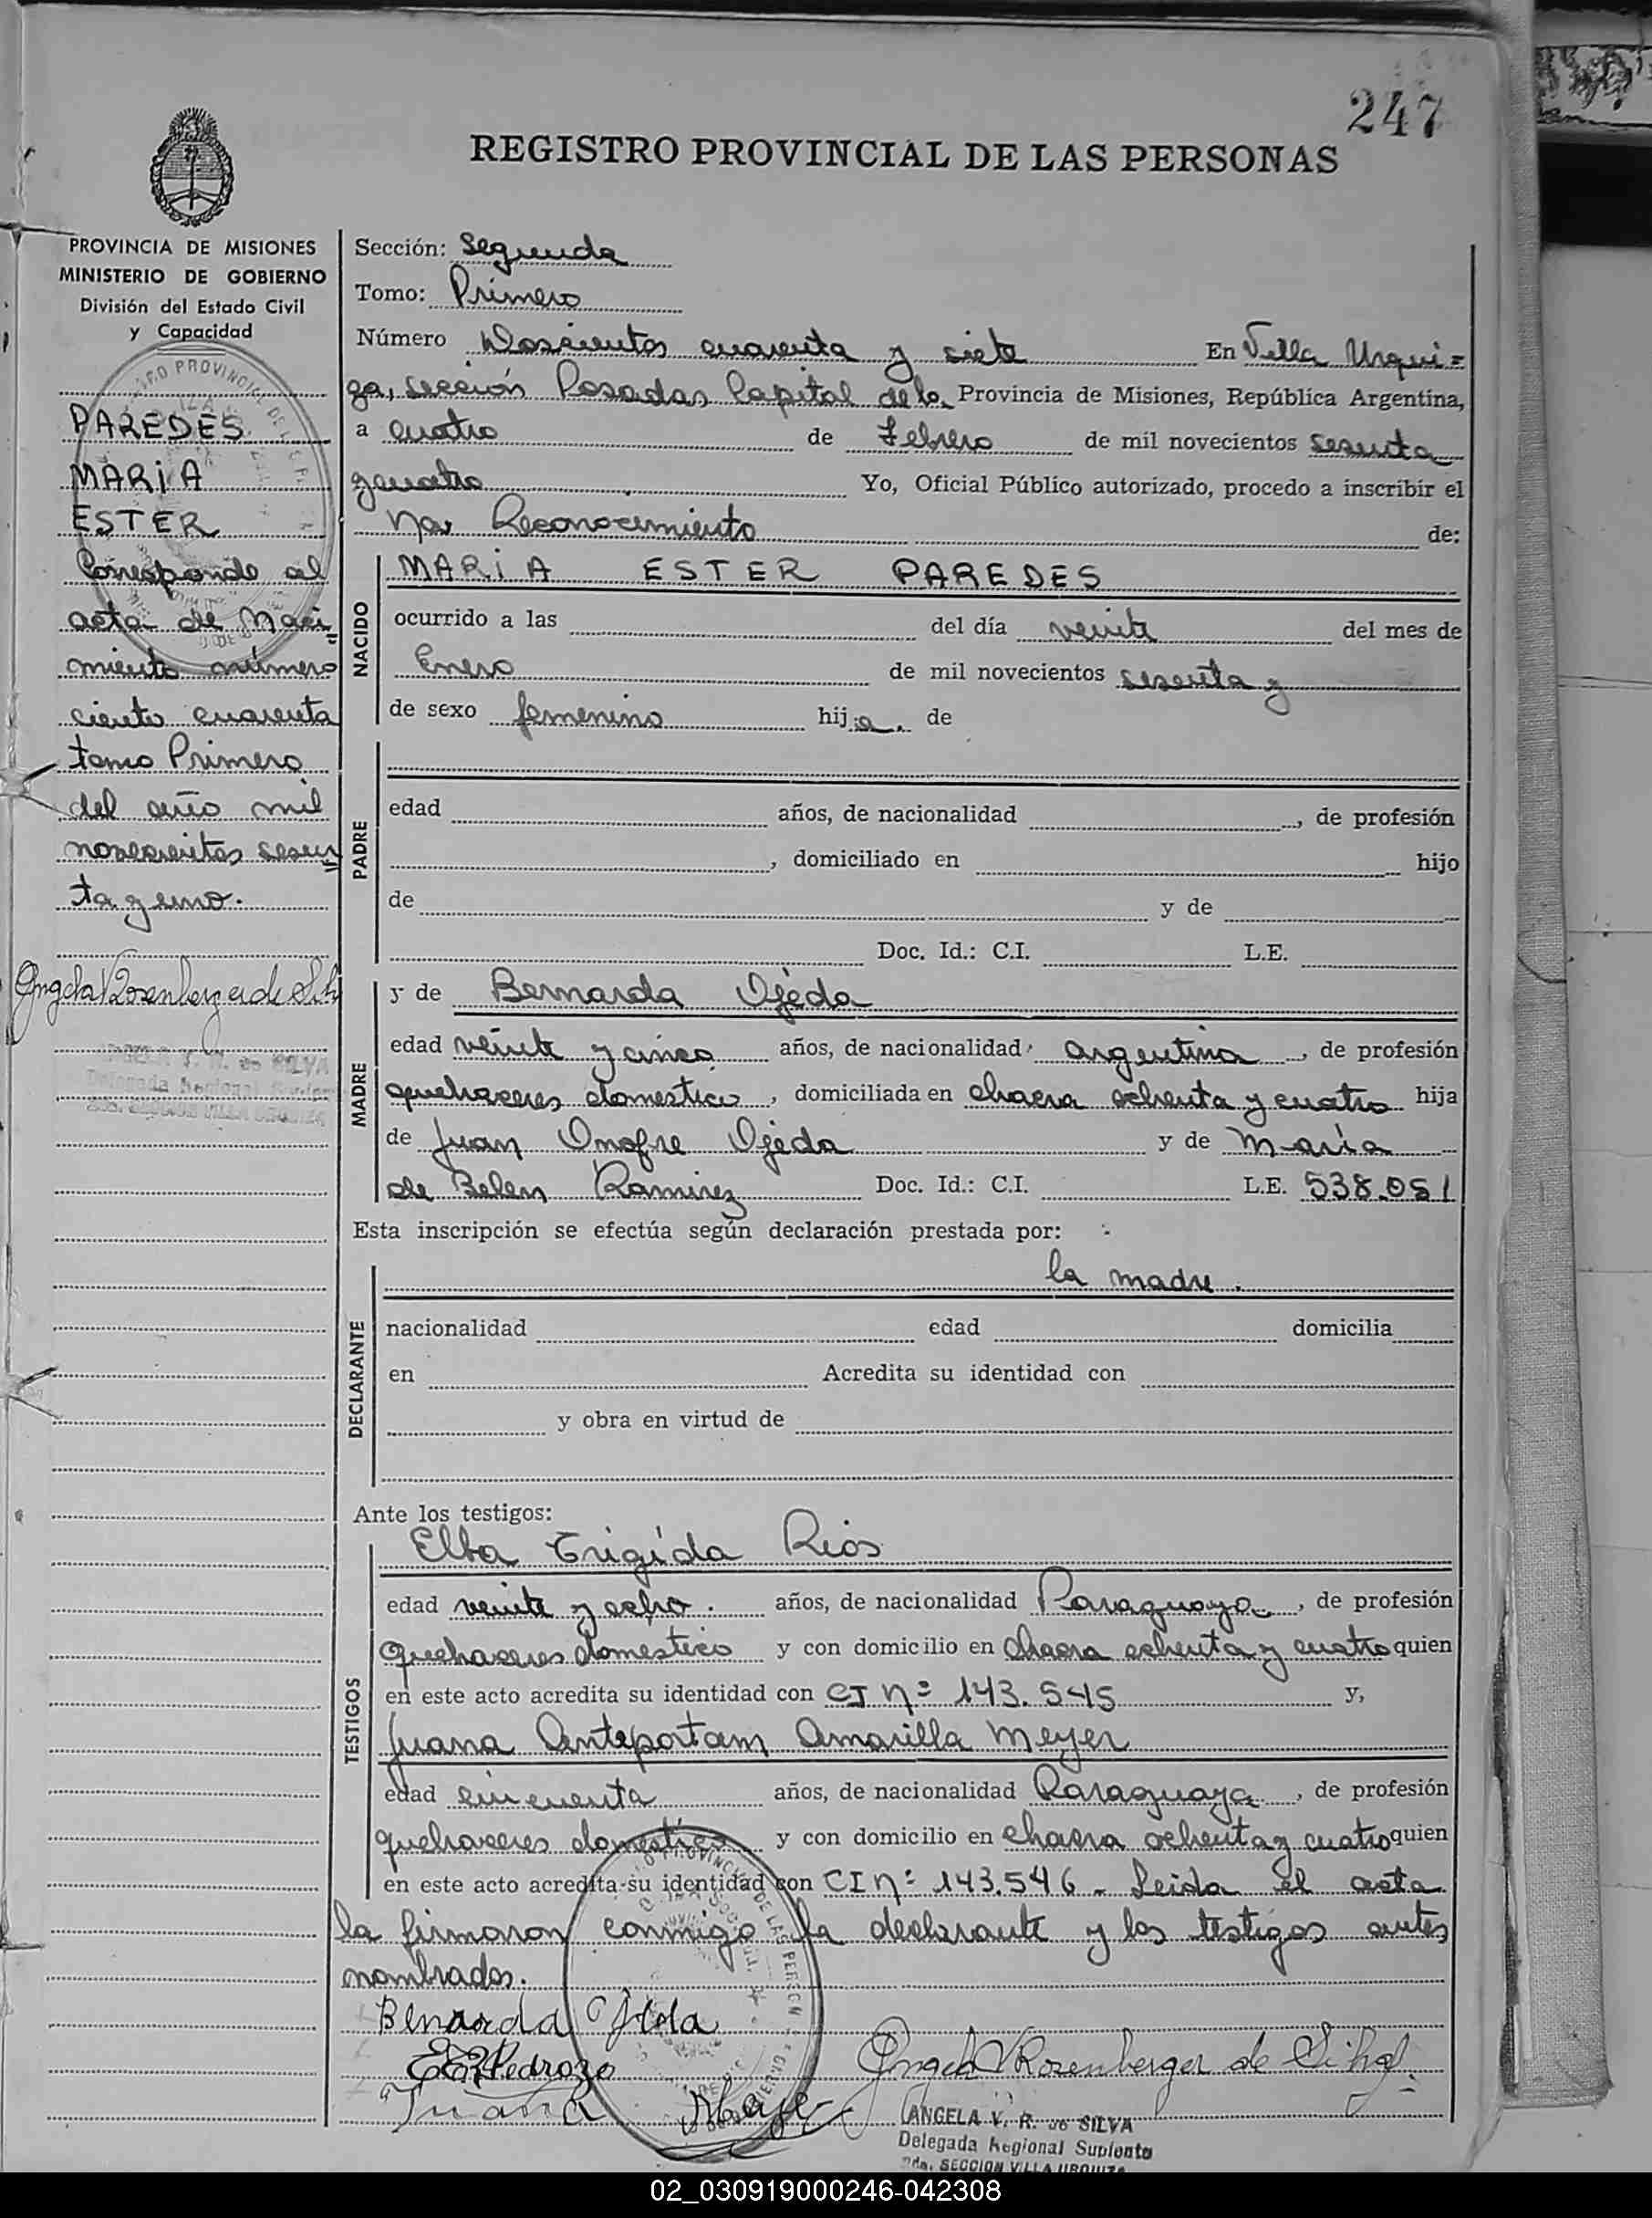 247
REGISTRO PROVINCIAL DE LAS PERSONAS
PROVINCIA DE MISIONES
MINISTERIO DE GOBIERNO
División del Estado Civil
y Capacidad
PAREDES
MARIA
ESTER
Corresponde al
acta de Naci=
miento número
ciento cuarenta
tomo Primero
del año mil
novecientos sesen=
ta y uno.
Angela V Rosenberger de Silva
Delegada Regional Suplente
2da. SECCION VILLA URQUIZA
Sección: Segunda
Tomo: Primero
Número Doscientos cuarenta y siete En Villa Urqui=
za, sección Posadas Capital de la Provincia de Misiones, República Argentina,
a cuatro de Febrero de mil novecientos sesenta
y cuatro Yo, Oficial Público autorizado, procedo a inscribir el
Reconocimiento de:
NACIDO
MARIA ESTER PAREDES
ocurrido a las del día veinte del mes de
Enero de mil novecientos sesenta y
de sexo femenino hija. de
PADRE
edad años, de nacionalidad , de profesión
, domiciliado en hijo
de y de
Doc. Id.: C.I. L.E.
MADRE
y de Bernarda Ojeda
edad veinte y cinco años, de nacionalidad argentina , de profesión
quehaceres domestico , domiciliada en chacra ochenta y cuatro hija
de Juan Onofre Ojeda y de Maria
de Belen Ramirez Doc. Id.: C.I. L.E. 538.051
Esta inscripción se efectúa según declaración prestada por:
la madre.
DECLARANTE
nacionalidad edad domicilia
en Acredita su identidad con
y obra en virtud de
Ante los testigos:
TESTIGOS
Elba Rios
edad veinte y ocho. años, de nacionalidad Paraguaya , de profesión
quehaceres domestico y con domicilio en chacra ochenta y cuatro quien
en este acto acredita su identidad con CI nº 143.545 y,
Juana Anteportam Amarilla Meyer
edad cincuenta años, de nacionalidad Paraguaya , de profesión
quehaceres domestico y con domicilio en chacra ochenta y cuatro quien
en este acto acredita su identidad con CI nº 143.546. Leida el acta
la firmaron conmigo la declarante y los testigos antes
nombrados.
Pedrozo
Juana
Angela V Rosenberger de Silva
ANGELA V. R. de SILVA
Delegada Regional Suplente
2da. SECCION VILLA URQUIZA
02_030919000246-042308